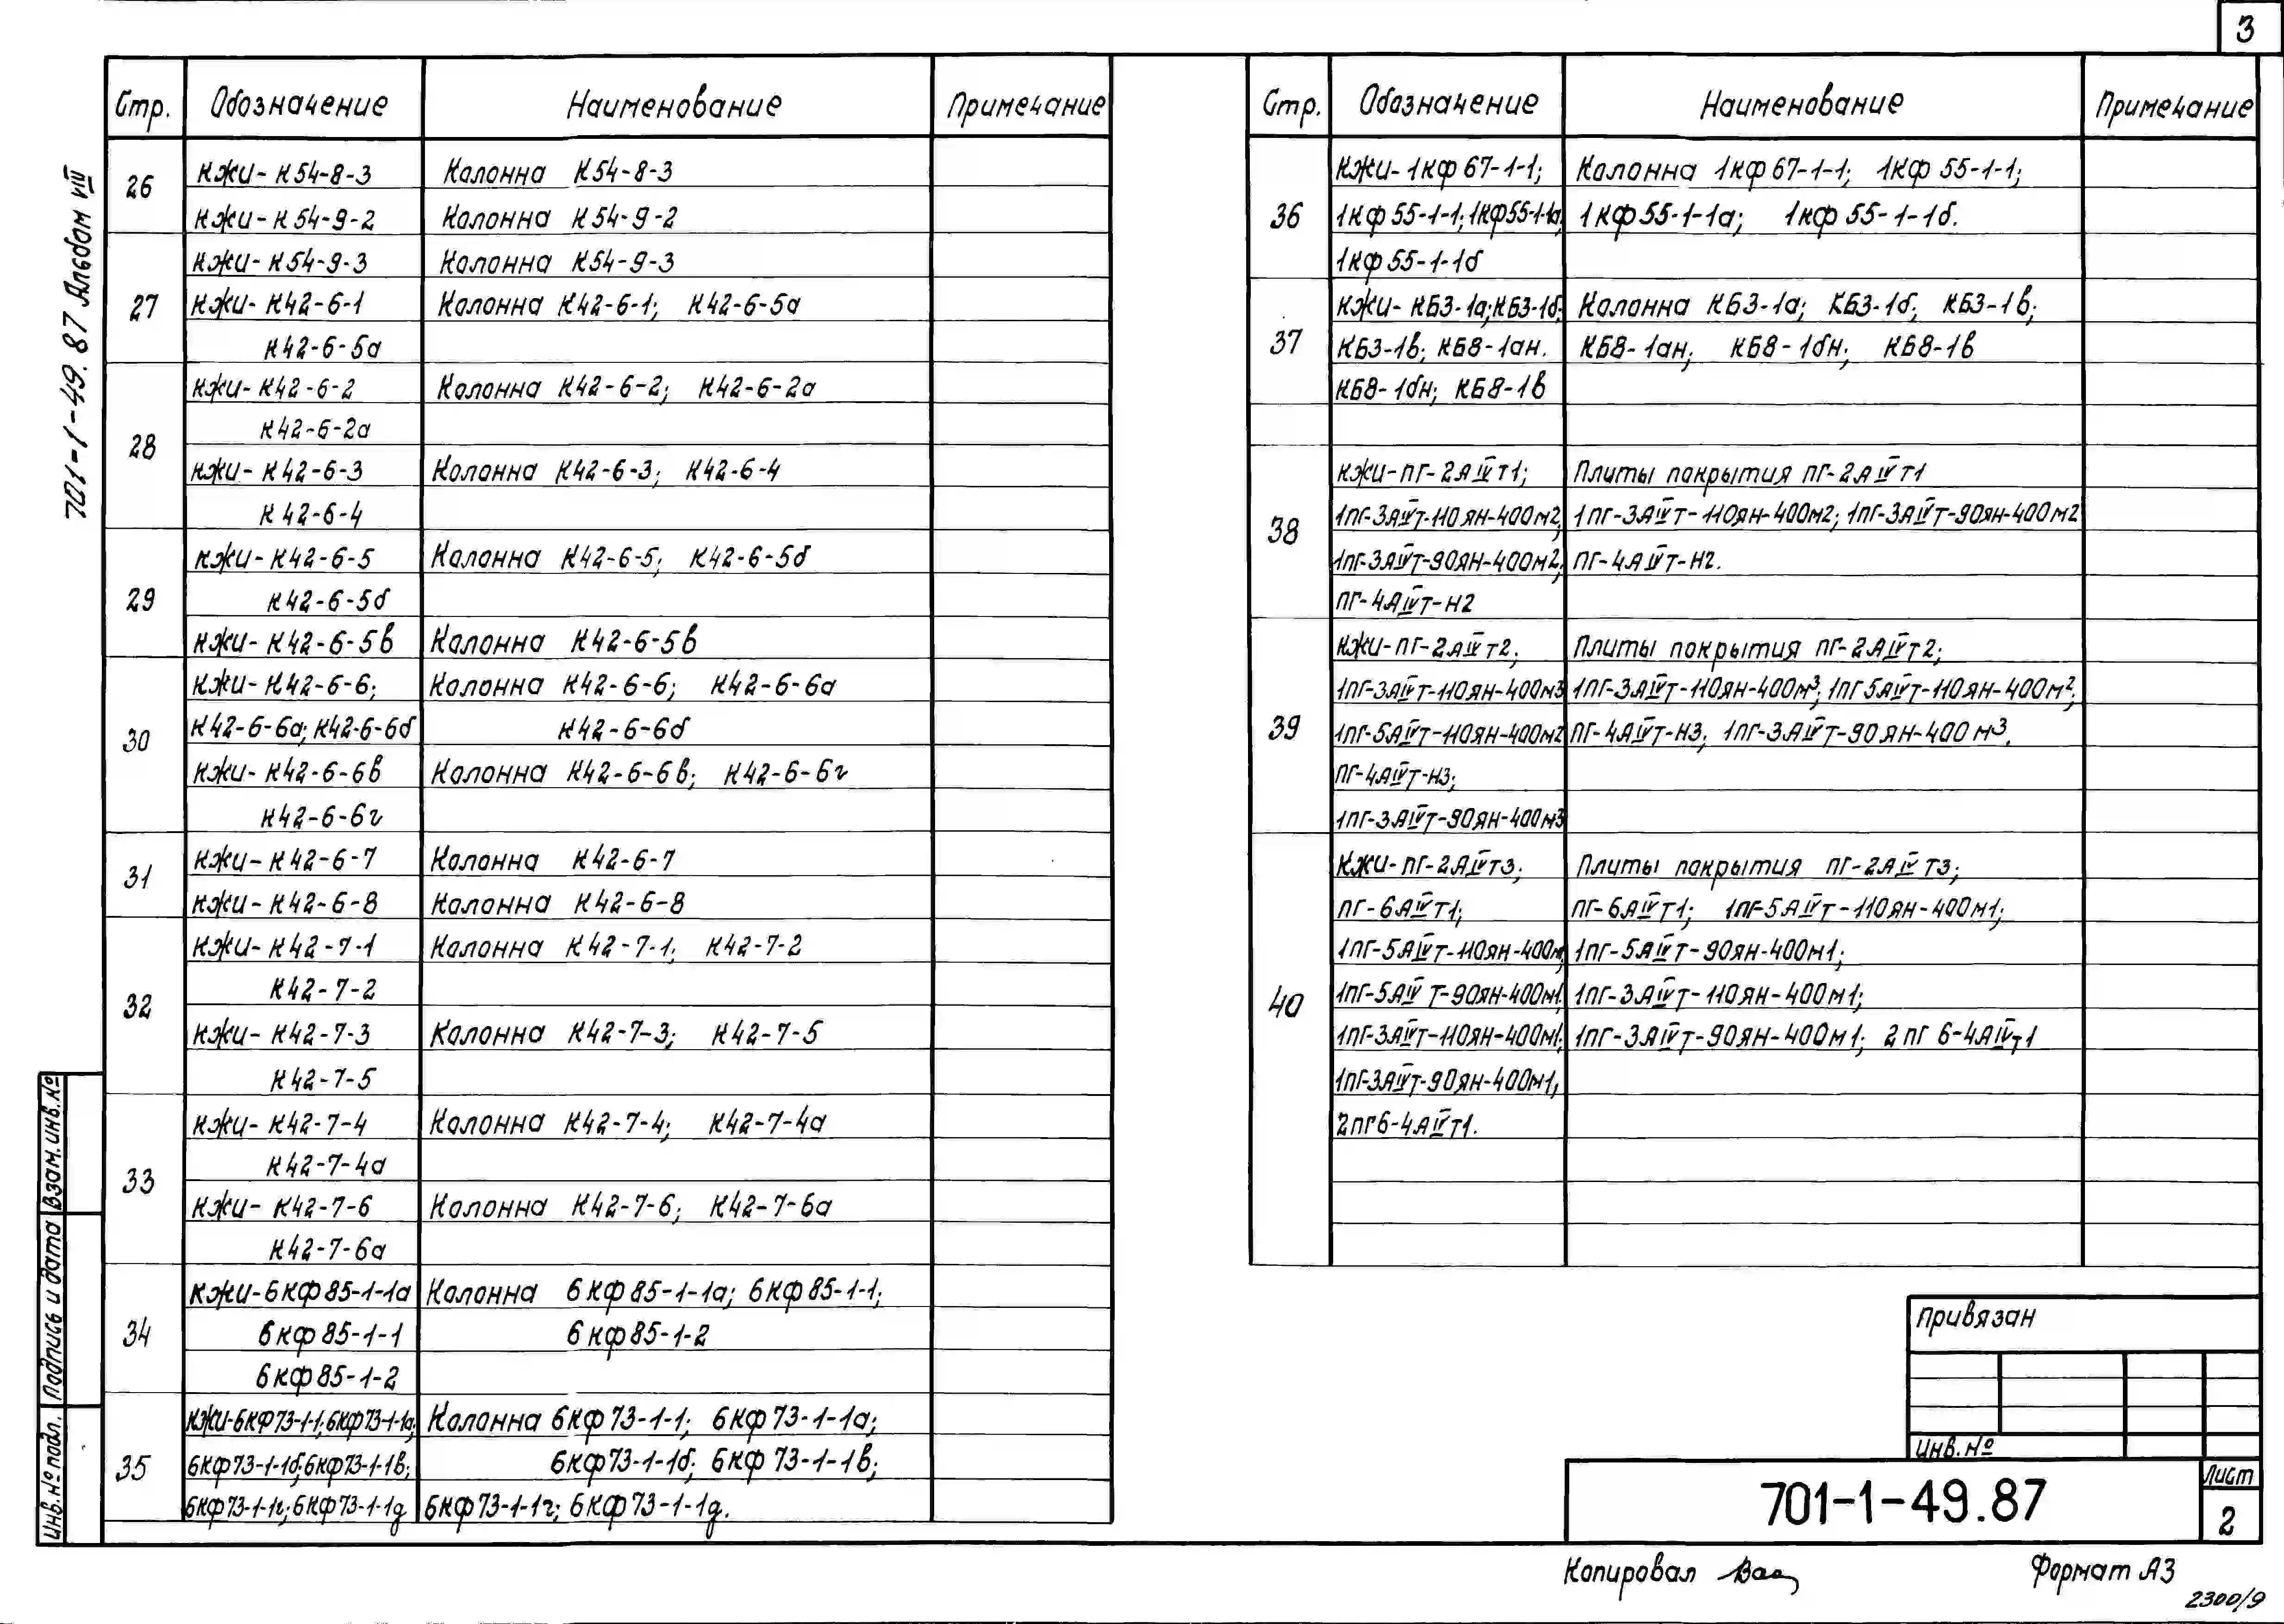 3
701-1-49.87 Альбом VIII
Стр. Обозначение Наименование Примечание
26 КЖИ-К54-8-3 Колонна К54-8-3
КЖИ-К54-9-2 Колонна К54-9-2
27 КЖИ-К54-9-3 Колонна К54-9-3
КЖИ-К42-6-1 Колонна К42-6-1; К42-6-5а
К42-6-5а
28 КЖИ-К42-6-2 Колонна К42-6-2; К42-6-2а
К42-6-2а
КЖИ-К42-6-3 Колонна К42-6-3; К42-6-4
К42-6-4
29 КЖИ-К42-6-5 Колонна К42-6-5; К42-6-5б
К42-6-5б
КЖИ-К42-6-5в Колонна К42-6-5в
30 КЖИ-К42-6-6; Колонна К42-6-6; К42-6-6а
К42-6-6а; К42-6-6б К42-6-6б
КЖИ-К42-6-6в Колонна К42-6-6в; К42-6-6г
К42-6-6г
31 КЖИ-К42-6-7 Колонна К42-6-7
КЖИ-К42-6-8 Колонна К42-6-8
32 КЖИ-К42-7-1 Колонна К42-7-1; К42-7-2
К42-7-2
КЖИ-К42-7-3 Колонна К42-7-3; К42-7-5
К42-7-5
33 КЖИ-К42-7-4 Колонна К42-7-4; К42-7-4а
К42-7-4а
КЖИ-К42-7-6 Колонна К42-7-6; К42-7-6а
К42-7-6а
34 КЖИ-6КФ85-1-1а Колонна 6КФ85-1-1а; 6КФ85-1-1;
6КФ85-1-1 6КФ85-1-2
6КФ85-1-2
35 КЖИ-6КФ73-1-1; 6КФ73-1-1а; Колонна 6КФ73-1-1; 6КФ73-1-1а;
6КФ73-1-1б; 6КФ73-1-1в; 6КФ73-1-1б; 6КФ73-1-1в;
6КФ73-1-1г; 6КФ73-1-1д 6КФ73-1-1г; 6КФ73-1-1д.
Стр. Обозначение Наименование Примечание
36 КЖИ-1КФ67-1-1; Колонна 1КФ67-1-1; 1КФ55-1-1;
1КФ55-1-1; 1КФ55-1-1а; 1КФ55-1-1а; 1КФ55-1-1б.
1КФ55-1-1б
37 КЖИ-КБ3-1а; КБ3-1б; Колонна КБ3-1а; КБ3-1б; КБ3-1в;
КБ3-1в; КБ8-1ан. КБ8-1ан; КБ8-1бн; КБ8-1в
КБ8-1бн; КБ8-1в
38 КЖИ-ПГ-2АIVТ1; Плиты покрытия ПГ-2АIVТ1
1ПГ-3АIVТ-110ЯН-400М2; 1ПГ-3АIVТ-110ЯН-400М2; 1ПГ-3АIVТ-90ЯН-400М2
1ПГ-3АIVТ-90ЯН-400М2; ПГ-4АIVТ-Н2.
ПГ-4АIVТ-Н2
39 КЖИ-ПГ-2АIVТ2; Плиты покрытия ПГ-2АIVТ2;
1ПГ-3АIVТ-110ЯН-400М3 1ПГ-3АIVТ-110ЯН-400М³; 1ПГ5АIVТ-110ЯН-400М²;
1ПГ-5АIVТ-110ЯН-400М2 ПГ-4АIVТ-Н3; 1ПГ-3АIVТ-90ЯН-400М³.
ПГ-4АIVТ-Н3;
1ПГ-3АIVТ-90ЯН-400М3
40 КЖИ-ПГ-2АIVТ3; Плиты покрытия ПГ-2АIVТ3;
ПГ-6АIVТ1; ПГ-6АIVТ1; 1ПГ-5АIVТ-110ЯН-400М1;
1ПГ-5АIVТ-110ЯН-400М; 1ПГ-5АIVТ-90ЯН-400М1;
1ПГ-5АIVТ-90ЯН-400М1; 1ПГ-3АIVТ-110ЯН-400М1;
1ПГ-3АIVТ-110ЯН-400М1; 1ПГ-3АIVТ-90ЯН-400М1; 2ПГ6-4АIVТ1
1ПГ-3АIVТ-90ЯН-400М1;
2ПГ6-4АIVТ1.
Привязан
Инв.№
701-1-49.87
Лист
2
Взам.инв.№
Подпись и дата
Инв.№ подл.
Копировал
Формат А3
2300/9